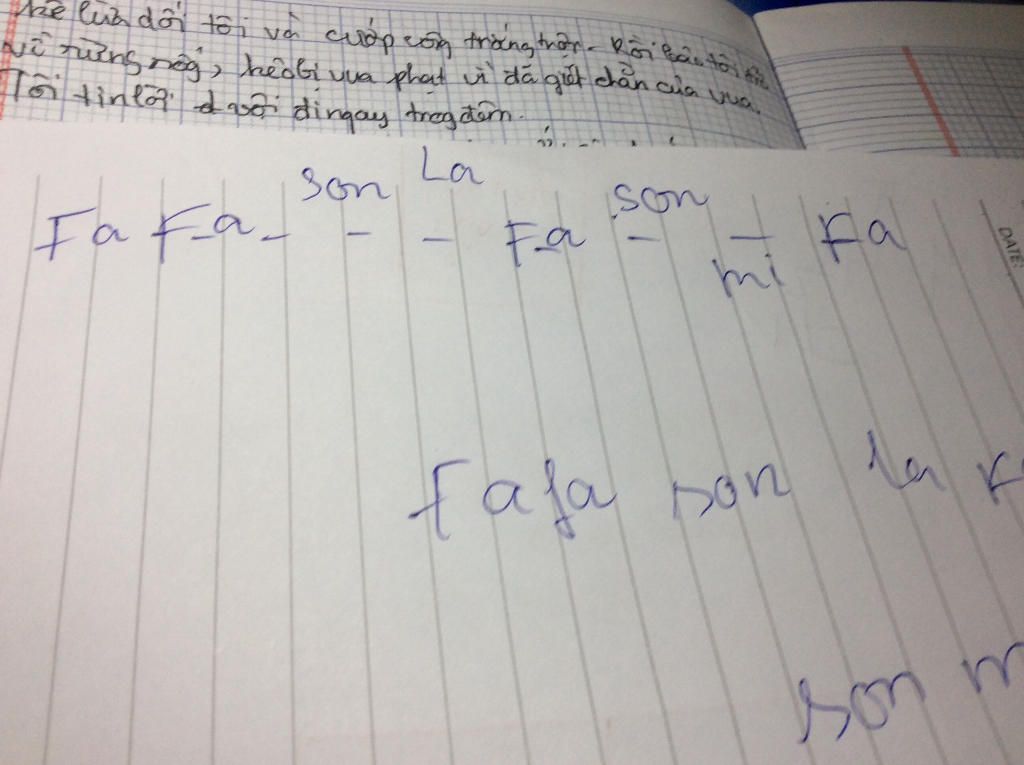 kẻ lừa dối tôi và cướp công trắng trợn. Rồi bảo tôi
về rừng nếg, kẻo bị vua phạt vì đã giết chằn của vua.
Tôi tin lời đi ngay trog đêm.
son La son
Fa Fa - - - Fa - - Fa
mi
DATE:
Fa fa son la F
son m